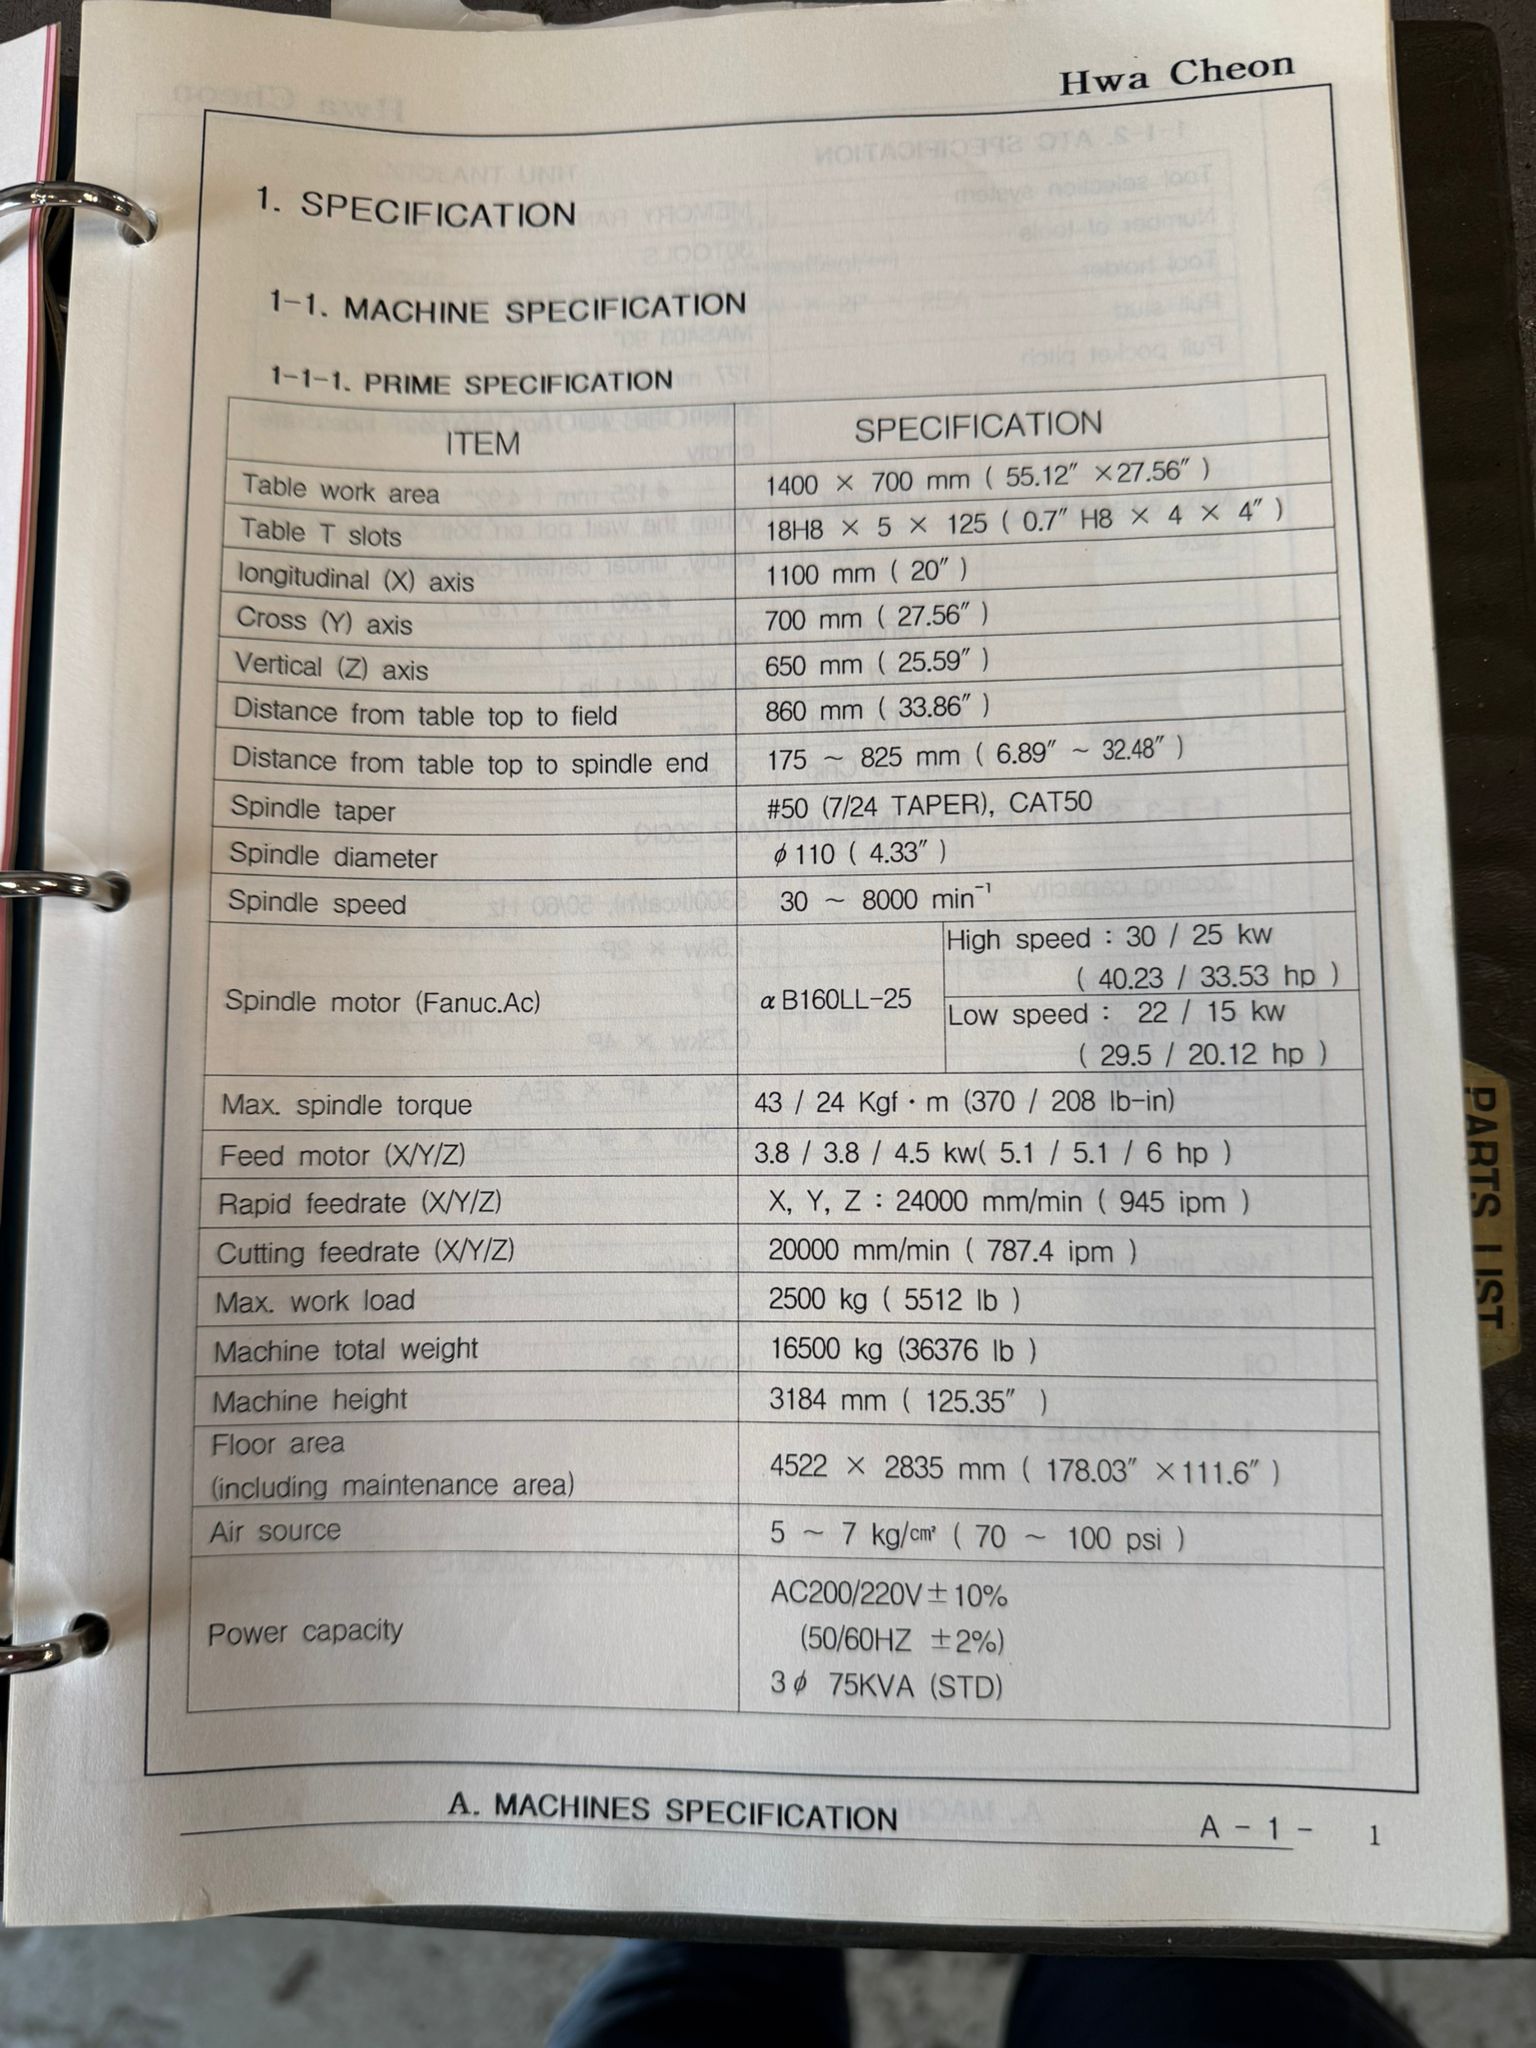 Hwa Cheon
1. SPECIFICATION
1-1. MACHINE SPECIFICATION
1-1-1. PRIME SPECIFICATION
ITEM SPECIFICATION
Table work area 1400 × 700 mm ( 55.12″ ×27.56″ )
Table T slots 18H8 × 5 × 125 ( 0.7″ H8 × 4 × 4″ )
longitudinal (X) axis 1100 mm ( 20″ )
Cross (Y) axis 700 mm ( 27.56″ )
Vertical (Z) axis 650 mm ( 25.59″ )
Distance from table top to field 860 mm ( 33.86″ )
Distance from table top to spindle end 175 ~ 825 mm ( 6.89″ ~ 32.48″ )
Spindle taper #50 (7/24 TAPER), CAT50
Spindle diameter ϕ110 ( 4.33″ )
Spindle speed 30 ~ 8000 min⁻¹
Spindle motor (Fanuc.Ac) αB160LL-25
High speed : 30 / 25 kw
( 40.23 / 33.53 hp )
Low speed : 22 / 15 kw
( 29.5 / 20.12 hp )
Max. spindle torque 43 / 24 Kgf·m (370 / 208 lb-in)
Feed motor (X/Y/Z) 3.8 / 3.8 / 4.5 kw( 5.1 / 5.1 / 6 hp )
Rapid feedrate (X/Y/Z) X, Y, Z : 24000 mm/min ( 945 ipm )
Cutting feedrate (X/Y/Z) 20000 mm/min ( 787.4 ipm )
Max. work load 2500 kg ( 5512 lb )
Machine total weight 16500 kg (36376 lb )
Machine height 3184 mm ( 125.35″ )
Floor area
(including maintenance area) 4522 × 2835 mm ( 178.03″ ×111.6″ )
Air source 5 ~ 7 kg/cm² ( 70 ~ 100 psi )
Power capacity AC200/220V±10%
(50/60HZ ±2%)
3ϕ 75KVA (STD)
A. MACHINES SPECIFICATION
A - 1 - 1
PARTS LIST